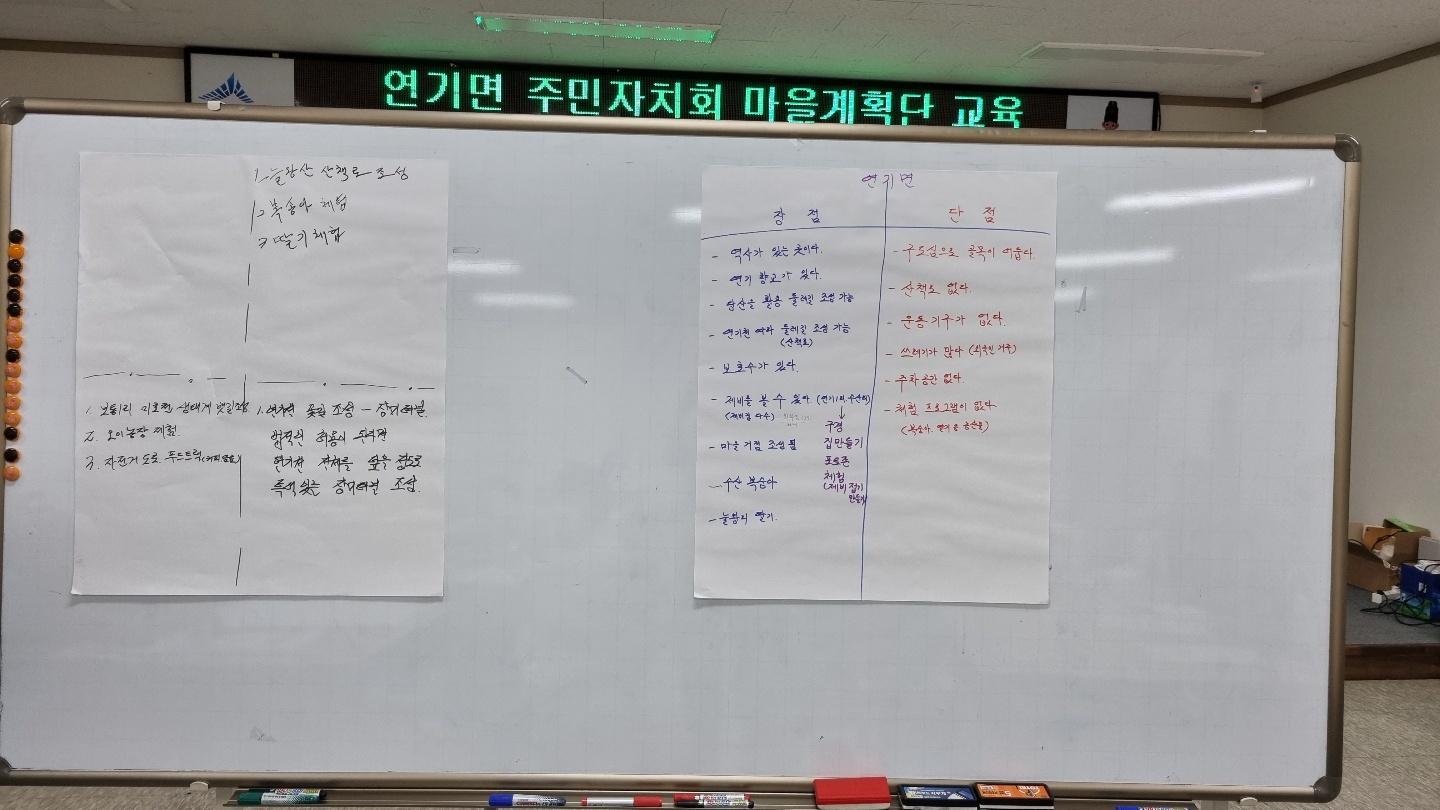 연기면 주민자치회 마을계획단 교육
1. 늘왕산 산책로 조성
2. 복숭아 체험
3. 딸기체험
1. 보통리 미호천 생태계
2. 오이농장 체험.
3. 자전거 도로 푸드트럭
1. 연기천 꽃길 조성 - 장미
연기천 전체를 조성.
연기면
장 점
- 역사가 있는 곳이다.
- 연기 향교가 있다.
- 당산을 활용 둘레길 조성 가능
- 연기천 따라 둘레길 조성 가능
(산책로)
- 보호수가 있다.
- 제비를 볼 수 있다 (연기1리, 수산리)
(제비집 다수)
↓
구경
집만들기
포토존
체험
(제비 접기
만들기)
- 마을 거점 조성 됨
- 수산 복숭아
- 눌왕리 딸기.
단 점
- 구도심으로 골목이 어둡다.
- 산책로 없다.
- 운동기구가 없다.
- 쓰레기가 많다 (외국인 거주)
- 주차공간 없다.
- 체험 프로그램이 없다
(복숭아, 딸기 등 농산물)